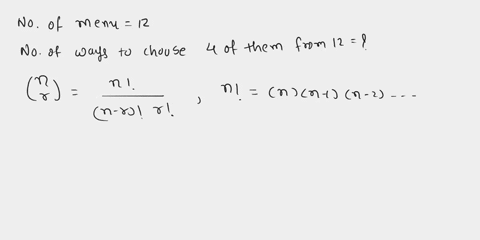 No. of menu = 12
No. of ways to choose 4 of them from 12 = ?
(n r) = n! / (n-r)! r! , n! = (n)(n-1)(n-2) ---